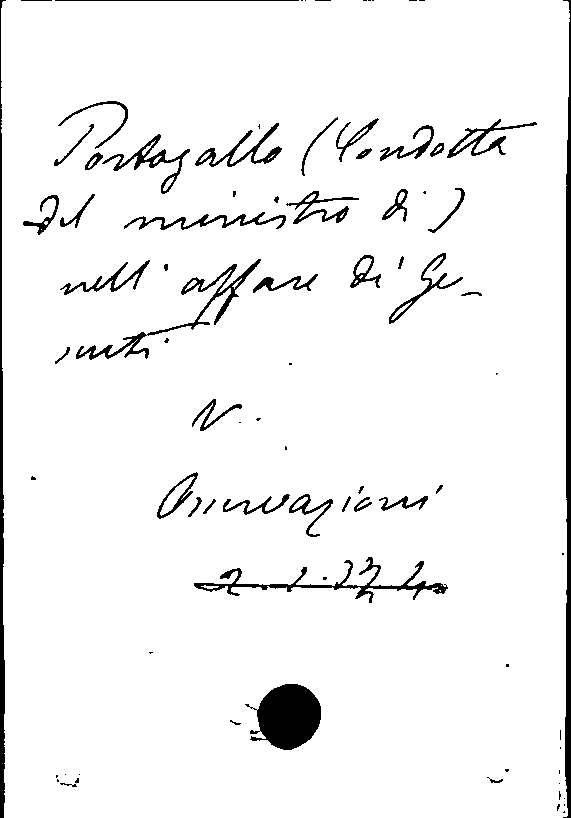 Portogallo (Condotta
del ministro di)
nell' affare di' Ge-
suiti
V.
Osservazioni